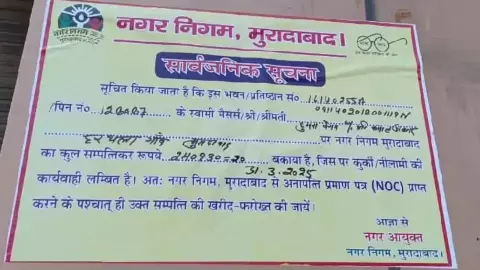 नगर निगम, मुरादाबाद।
सार्वजनिक सूचना
सूचित किया जाता है कि इस भवन/प्रतिष्ठान सं०
/पिन नं० के स्वामी मैसर्स/श्री/श्रीमती
पर नगर निगम मुरादाबाद
का कुल सम्पत्तिकर रूपये बकाया है, जिस पर कुर्की/नीलामी की
31.3.2025
कार्यवाही लम्बित है। अतः नगर निगम, मुरादाबाद से अनापत्ति प्रमाण पत्र (NOC) प्राप्त
करने के पश्चात् ही उक्त सम्पत्ति की खरीद-फरोख्त की जायें।
आज्ञा से
नगर आयुक्त
नगर निगम, मुरादाबाद।